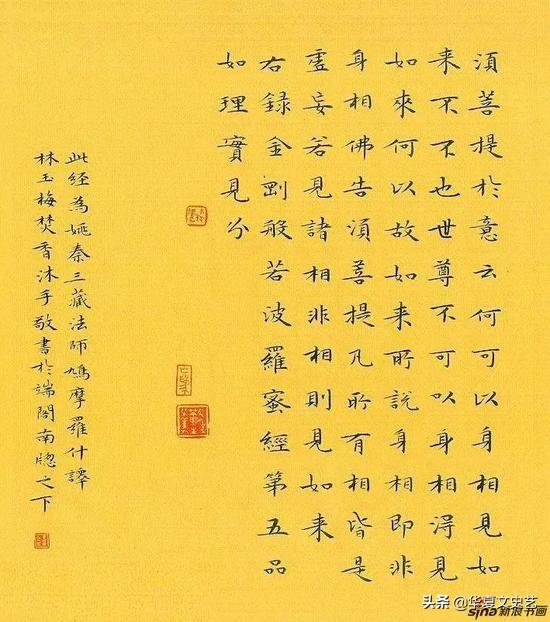 湏菩提於意云何可以身相見如
来不不也世尊不可以身相淂見
如來何以故如来所說身相即非
身相佛告湏菩提凡所有相皆是
虛妄若見諸相非相則見如来
右録金剛般若波羅蜜經第五品
如理實見分
此經為姚秦三藏法師鳩摩羅什譯
林玉梅焚香沐手敬書於端閣南牕之下
头条 @华夏文史艺
sina新浪书画